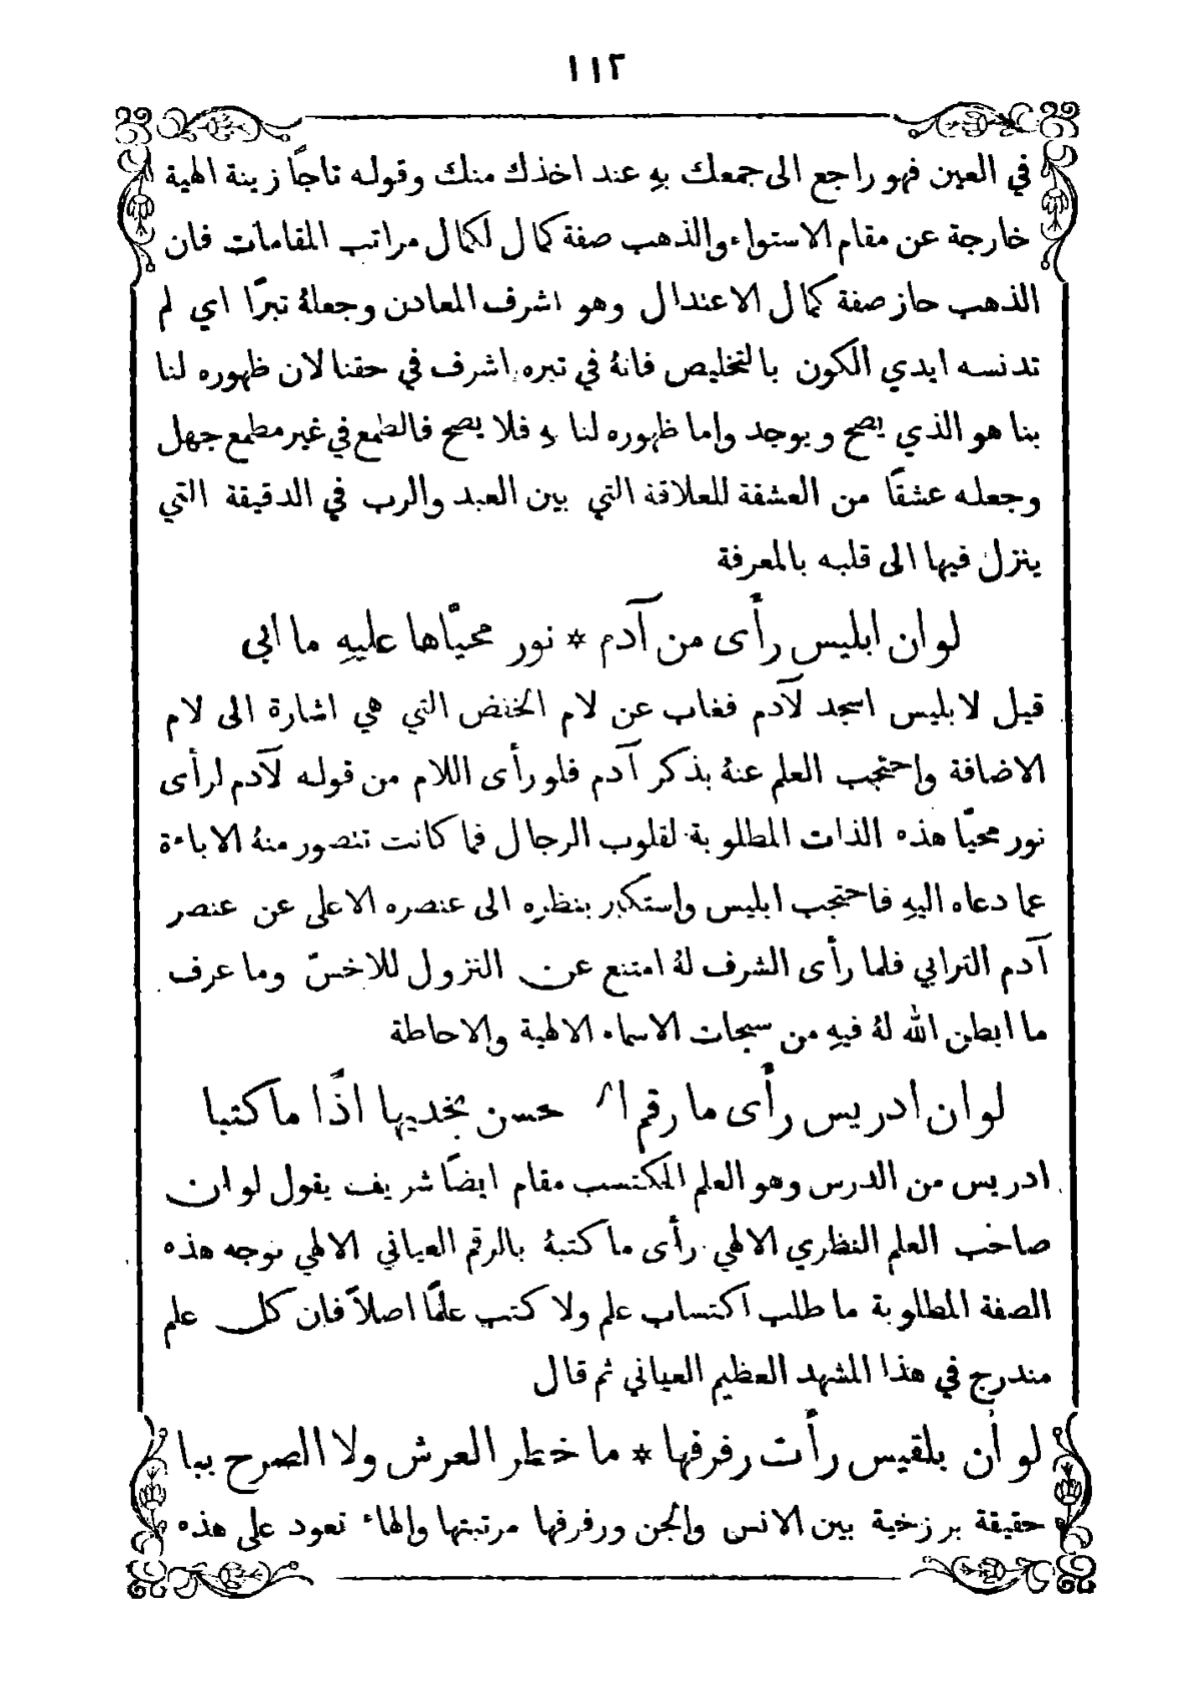 ١١٢
في العين فهو راجع الى جمعك بهِ عند اخذك منك وقوله تاجًا زينة الهية
خارجة عن مقام الاستواء والذهب صفة كمال لكمال مراتب المقامات فان
الذهب حاز صفة كمال الاعتدال وهو اشرف المعادن وجعلهُ تبرًا اي لم
تدنسه ايدي الكون بالتخليص فانهُ في تبره اشرف في حقنا لان ظهوره لنا
بنا هو الذي يصح ويوجد واما ظهوره لنا بهِ فلا يصح فالطمع في غير مطمع جهل
وجعله عشقًا من العشقة للعلاقة التي بين العبد والرب في الدقيقة التي
ينزل فيها الى قلبه بالمعرفة
لو ان ابليس رأى من آدم * نور محيّاها عليهِ ما ابى
قيل لابليس اسجد لآدم فغاب عن لام الخفض التي هي اشارة الى لام
الاضافة واحتجب العلم عنهُ بذكر آدم فلو رأى اللام من قوله لآدم لرأى
نور محيّا هذه الذات المطلوبة لقلوب الرجال فما كانت تتصور منهُ الاباءة
عما دعاه اليهِ فاحتجب ابليس واستكبر بنظره الى عنصره الاعلى عن عنصر
آدم الترابي فلما رأى الشرف لهُ امتنع عن النزول للاخسّ وما عرف
ما ابطن الله لهُ فيهِ من سبحات الاسماء الالهية والاحاطة
لو ان ادريس رأى ما رقم ا' حسن بخديها اذًا ما كتبا
ادريس من الدرس وهو العلم المكتسب مقام ايضًا شريف يقول لو ان
صاحب العلم النظري الالهي رأى ما كتبهُ بالرقم العياني الالهي توجه هذه
الصفة المطلوبة ما طلب اكتساب علم ولا كتب علمًا اصلاً فان كل علم
مندرج في هذا المشهد العظيم العياني ثم قال
لو أن بلقيس رأت رفرفها * ما خطر العرش ولا الصرح ببا
حقيقة برزخية بين الانس والجن ورفرفها مرتبتها والهاء تعود على هذه